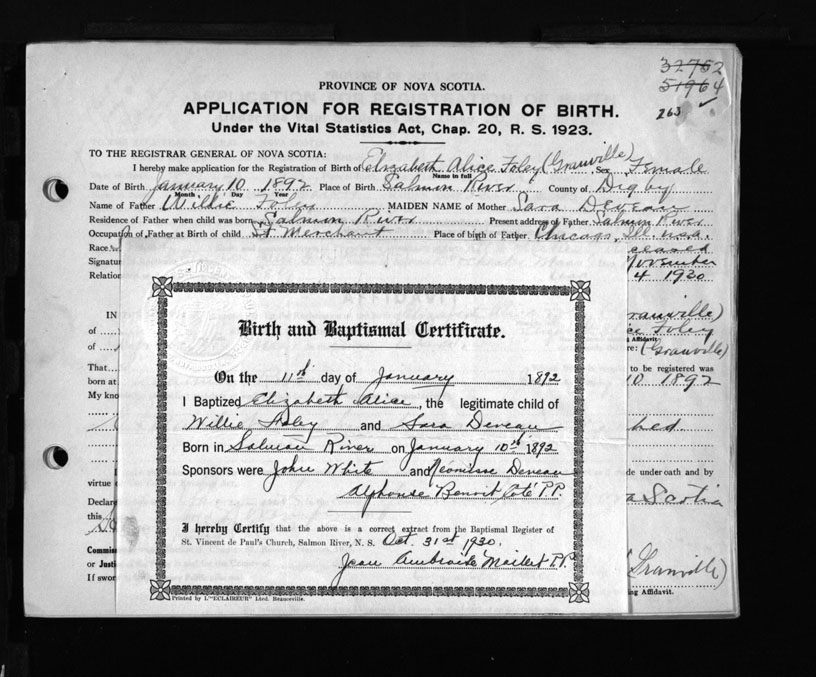 32752
51964
263
PROVINCE OF NOVA SCOTIA.
APPLICATION FOR REGISTRATION OF BIRTH.
Under the Vital Statistics Act, Chap. 20, R. S. 1923.
TO THE REGISTRAR GENERAL OF NOVA SCOTIA:
I hereby make application for the Registration of Birth of Elizabeth Alice Foley (Granville) Sex Female
Name in full
Date of Birth January 10 1892 Place of Birth Salmon River County of Digby
Month Day Year
Name of Father Willie Foley MAIDEN NAME of Mother Sara Deveau
Residence of Father when child was born Salmon River Present address of Father Salmon River
Occupation of Father at Birth of child Merchant Place of birth of Father Chicago, Ill. USA.
Race
Signatur November
Relation 4 1930
IN
of Foley
of (Granville)
ng Affidavit
That to be registered was
born at 10 1892
My kno
ade under oath and by
virtue
Declare Scotia
this
Commis
or Justi Granville)
If swor ing Affidavit.
Birth and Baptismal Certificate.
On the 11th day of January 1892
I Baptized Elizabeth Alice, the legitimate child of
Willie Foley and Sara Deveau
Born in Salmon River on January 10th 1892
Sponsors were John White and Neomisse Deveau
Alphonse Benoit Coté P.P.
I hereby Certify that the above is a correct extract from the Baptismal Register of
St. Vincent de Paul's Church, Salmon River, N. S. Oct. 31st 1930.
Jean Ambroise Maillet P.P.
Printed by L'"ECLAIREUR" Lted. Beauceville.